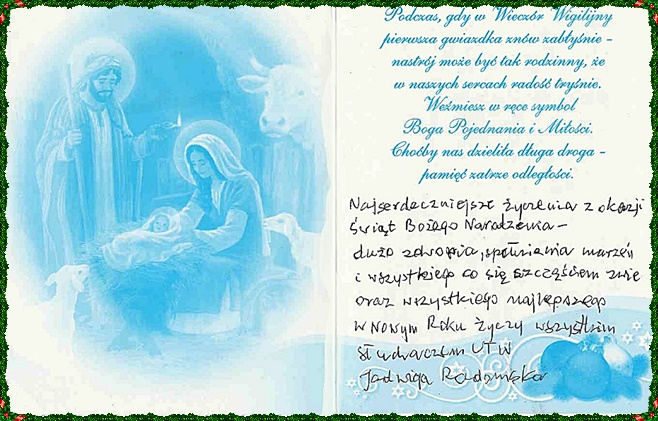 Podczas, gdy w Wieczór Wigilijny
pierwsza gwiazdka znów zabłyśnie -
nastrój może być tak rodzinny, że
w naszych sercach radość tryśnie.
Weźmiesz w ręce symbol
Boga Pojednania i Miłości.
Choćby nas dzieliła długa droga -
pamięć zatrze odległości.
Najserdeczniejsze życzenia z okazji
Świąt Bożego Narodzenia -
dużo zdrowia, spełniania marzeń
i wszystkiego co się szczęściem zwie
oraz wszystkiego najlepszego
w Nowym Roku życzy wszystkim
słuchaczom UTW
Jadwiga Radomska